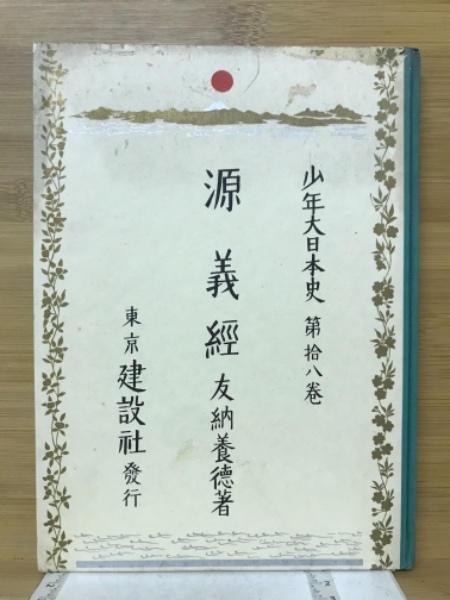 少年大日本史 第拾八巻
源義經 友納養德著
東京 建設社 發行